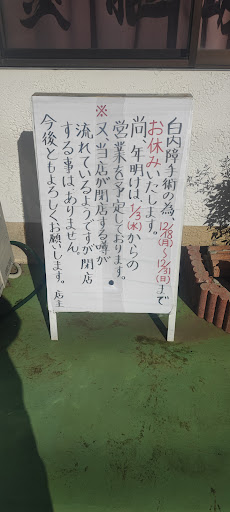 白内障手術の為、12/18(月)～12/31(日)まで
お休みいたします。
尚、年明けは、1/3(水)からの
営業を予定しております。
※又、当店が閉店する噂が
流れているようですが閉店
する事はありません。
今後ともよろしくお願いします。店主